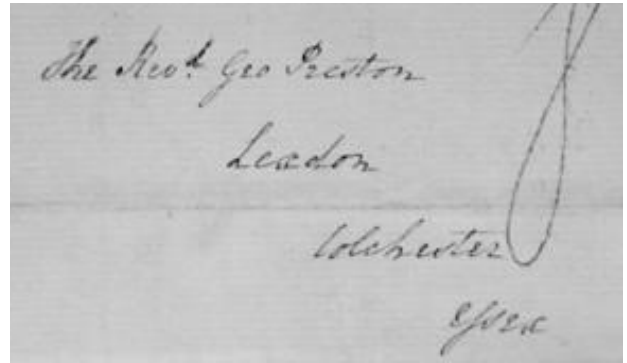 The Revd. Geo Preston
Lexdon
Colchester
Essex